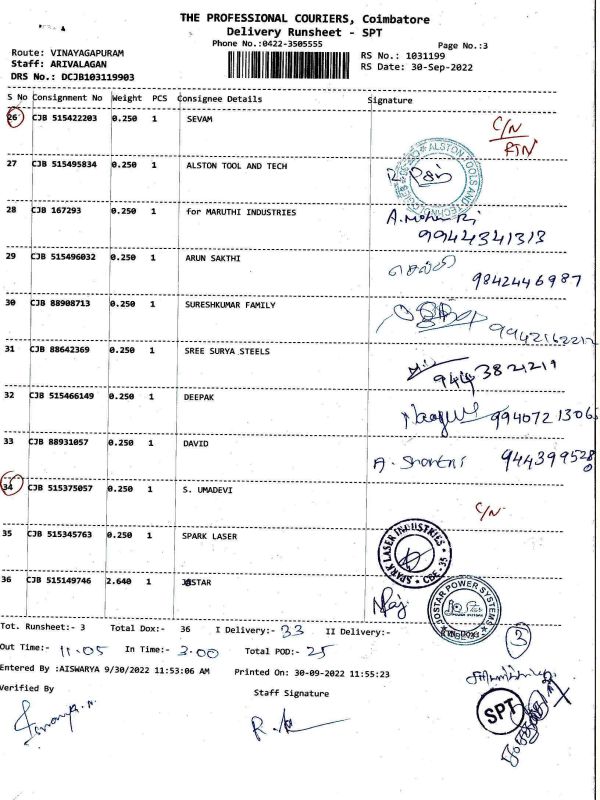 THE PROFESSIONAL COURIERS, Coimbatore
Delivery Runsheet - SPT
Phone No.:0422-3505555
Page No.:3
Route: VINAYAGAPURAM
RS No.: 1031199
Staff: ARIVALAGAN
RS Date: 30-Sep-2022
DRS No.: DCJB103119903
S No Consignment No Weight PCS Consignee Details Signature
26 CJB 515422203 0.250 1 SEVAM C/N
RTN
27 CJB 515495834 0.250 1 ALSTON TOOL AND TECH
ALSTON TOOLS AND TECHNOLOGIES
28 CJB 167293 0.250 1 for MARUTHI INDUSTRIES
9944341313
29 CJB 515496032 0.250 1 ARUN SAKTHI
செல்வி 9842446987
30 CJB 88908713 0.250 1 SURESHKUMAR FAMILY
31 CJB 88642369 0.250 1 SREE SURYA STEELS
9443821219
32 CJB 515466149 0.250 1 DEEPAK
9940721306
33 CJB 88931057 0.250 1 DAVID
A. 9443995280
34 CJB 515375057 0.250 1 S. UMADEVI
C/N
35 CJB 515345763 0.250 1 SPARK LASER
SPARK LASER INDUSTRIES CBE-35
36 CJB 515149746 2.640 1 JOSTAR
JOSTAR POWER SYSTEMS
Tot. Runsheet:- 3 Total Dox:- 36 I Delivery:- 33 II Delivery:-
3
Out Time:- 11.05 In Time:- 3.00 Total POD:- 25
Entered By :AISWARYA 9/30/2022 11:53:06 AM Printed On: 30-09-2022 11:55:23
Verified By Staff Signature
SPT